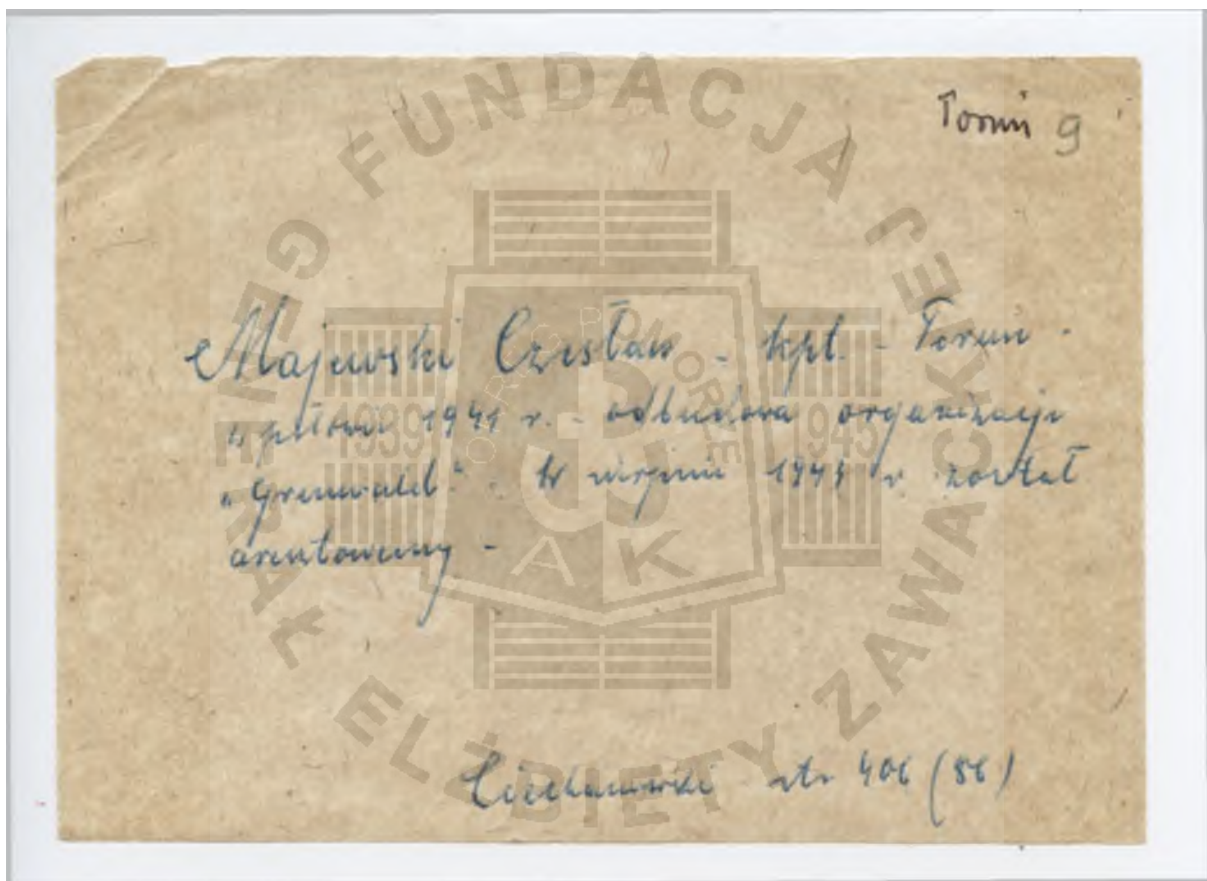 Toruń 9
Majewski Czesław - kpt. - Toruń -
w połowie 1941 r. - odbudowa organizacji
„Grunwald". W sierpniu 1941 r. został
aresztowany -
Ciechanowski str 406 (86)
FUNDACJA JEJ
GENERAŁ ELŻBIETY ZAWACKIEJ
OKRĘG POMORZE
1939 1945
AK